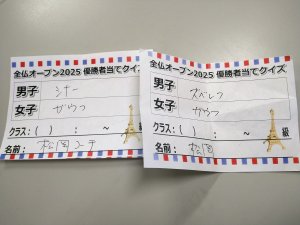 全仏オープン2025 優勝者当てクイズ
男子 シナー
女子 ガウフ
クラス:( ) : ~ 級
名前: 松岡コーチ
全仏オープン2025 優勝者当てクイズ
男子 ズベレフ
女子 ガウフ
クラス:( ) : ~ 級
名前: 松岡